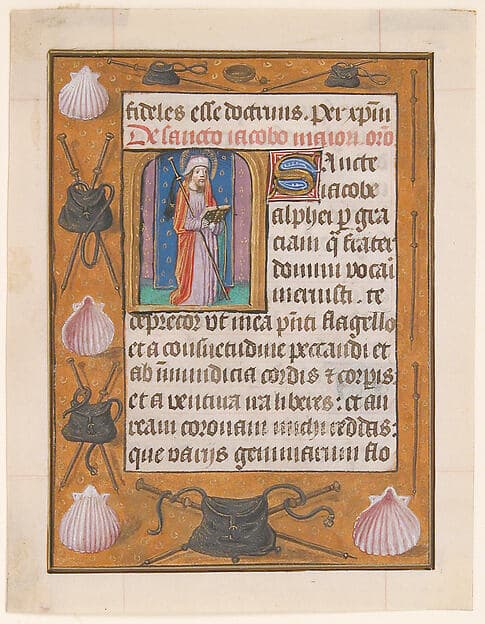 fideles esse doctrinis. Per xp̄m
De sancto iacobo maiori oro
Sancte
iacobe
alphei ꝑ gra
ciam q̄ frater
domini vocari
meruisti. te
deprecor vt mea p̄nti flagello
et a consuetudine peccandi et
ab īmundicia cordis ⁊ corpis
et a ventura ira liberes: et au
ream coronam michi reddas:
que varijs gemmarum flo